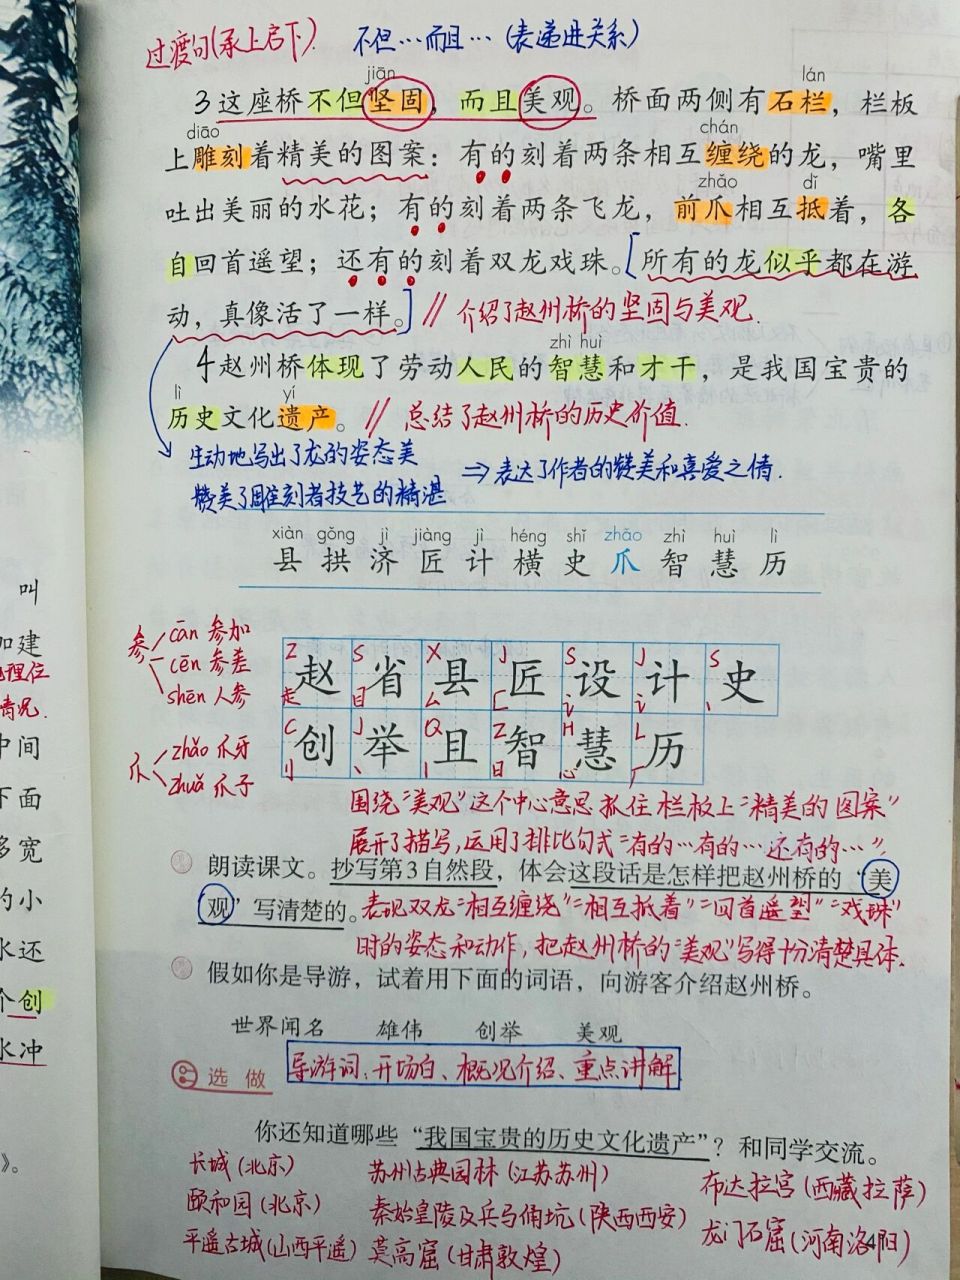 过渡句(承上启下).
不但…而且…(表递进关系)
jiān
lán
3 这座桥不但坚固，而且美观。桥面两侧有石栏，栏板
diāo
chán
上雕刻着精美的图案：有的刻着两条相互缠绕的龙，嘴里
zhǎo
dǐ
吐出美丽的水花；有的刻着两条飞龙，前爪相互抵着，各
自回首遥望；还有的刻着双龙戏珠。所有的龙似乎都在游
动，真像活了一样。
// 介绍了赵州桥的坚固与美观.
zhì huì
4 赵州桥体现了劳动人民的智慧和才干，是我国宝贵的
lì
yí
历史文化遗产。
// 总结了赵州桥的历史价值.
生动地写出了龙的姿态美
赞美了雕刻者技艺的精湛
⇒表达了作者的赞美和喜爱之情.
xiàn gǒng jì jiàng jì héng shǐ zhǎo zhì huì lì
县 拱 济 匠 计 横 史 爪 智 慧 历
参
cān 参加
cēn 参差
shēn 人参
爪
zhǎo 爪牙
zhuǎ 爪子
Z S X J S J S
赵 省 县 匠 设 计 史
走 目 厶 匚 讠 讠 丶
C J Q Z H L
创 举 且 智 慧 历
刂 丶 丨 日 心 厂
围绕“美观”这个中心意思抓住栏板上“精美的图案”
展开了描写,运用了排比句式“有的…有的…还有的…”.
朗读课文。抄写第3自然段，体会这段话是怎样把赵州桥的“美
观”写清楚的。
表现双龙“相互缠绕”“相互抵着”“回首遥望”“戏珠”
时的姿态和动作,把赵州桥的“美观”写得十分清楚具体.
假如你是导游，试着用下面的词语，向游客介绍赵州桥。
世界闻名 雄伟 创举 美观
选做
导游词:开场白、概况介绍、重点讲解
你还知道哪些“我国宝贵的历史文化遗产”？和同学交流。
长城(北京)
苏州古典园林(江苏苏州)
布达拉宫(西藏拉萨)
颐和园(北京)
秦始皇陵及兵马俑坑(陕西西安)
龙门石窟(河南洛阳)
平遥古城(山西平遥)
莫高窟(甘肃敦煌)
叫
加建
地理位
情况.
中间
下面
多宽
的小
水还
个创
水冲
》。